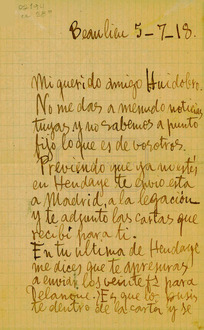 Beaulieu 5-7-18.
Mi querido amigo Huidobro.
No me das a menudo noticias
tuyas y no sabemos a punto
fijo lo que es de vosotros.
Previendo que ya no estés
en Hendaye te envío esta
a Madrid, a la legación
y te adjunto las cartas que
recibí para ti.
En tu última de Hendaye
me dices que te apresuras
a enviar los veinte frs para
Delanoue. Es que lo pusis
te dentro de la carta y se